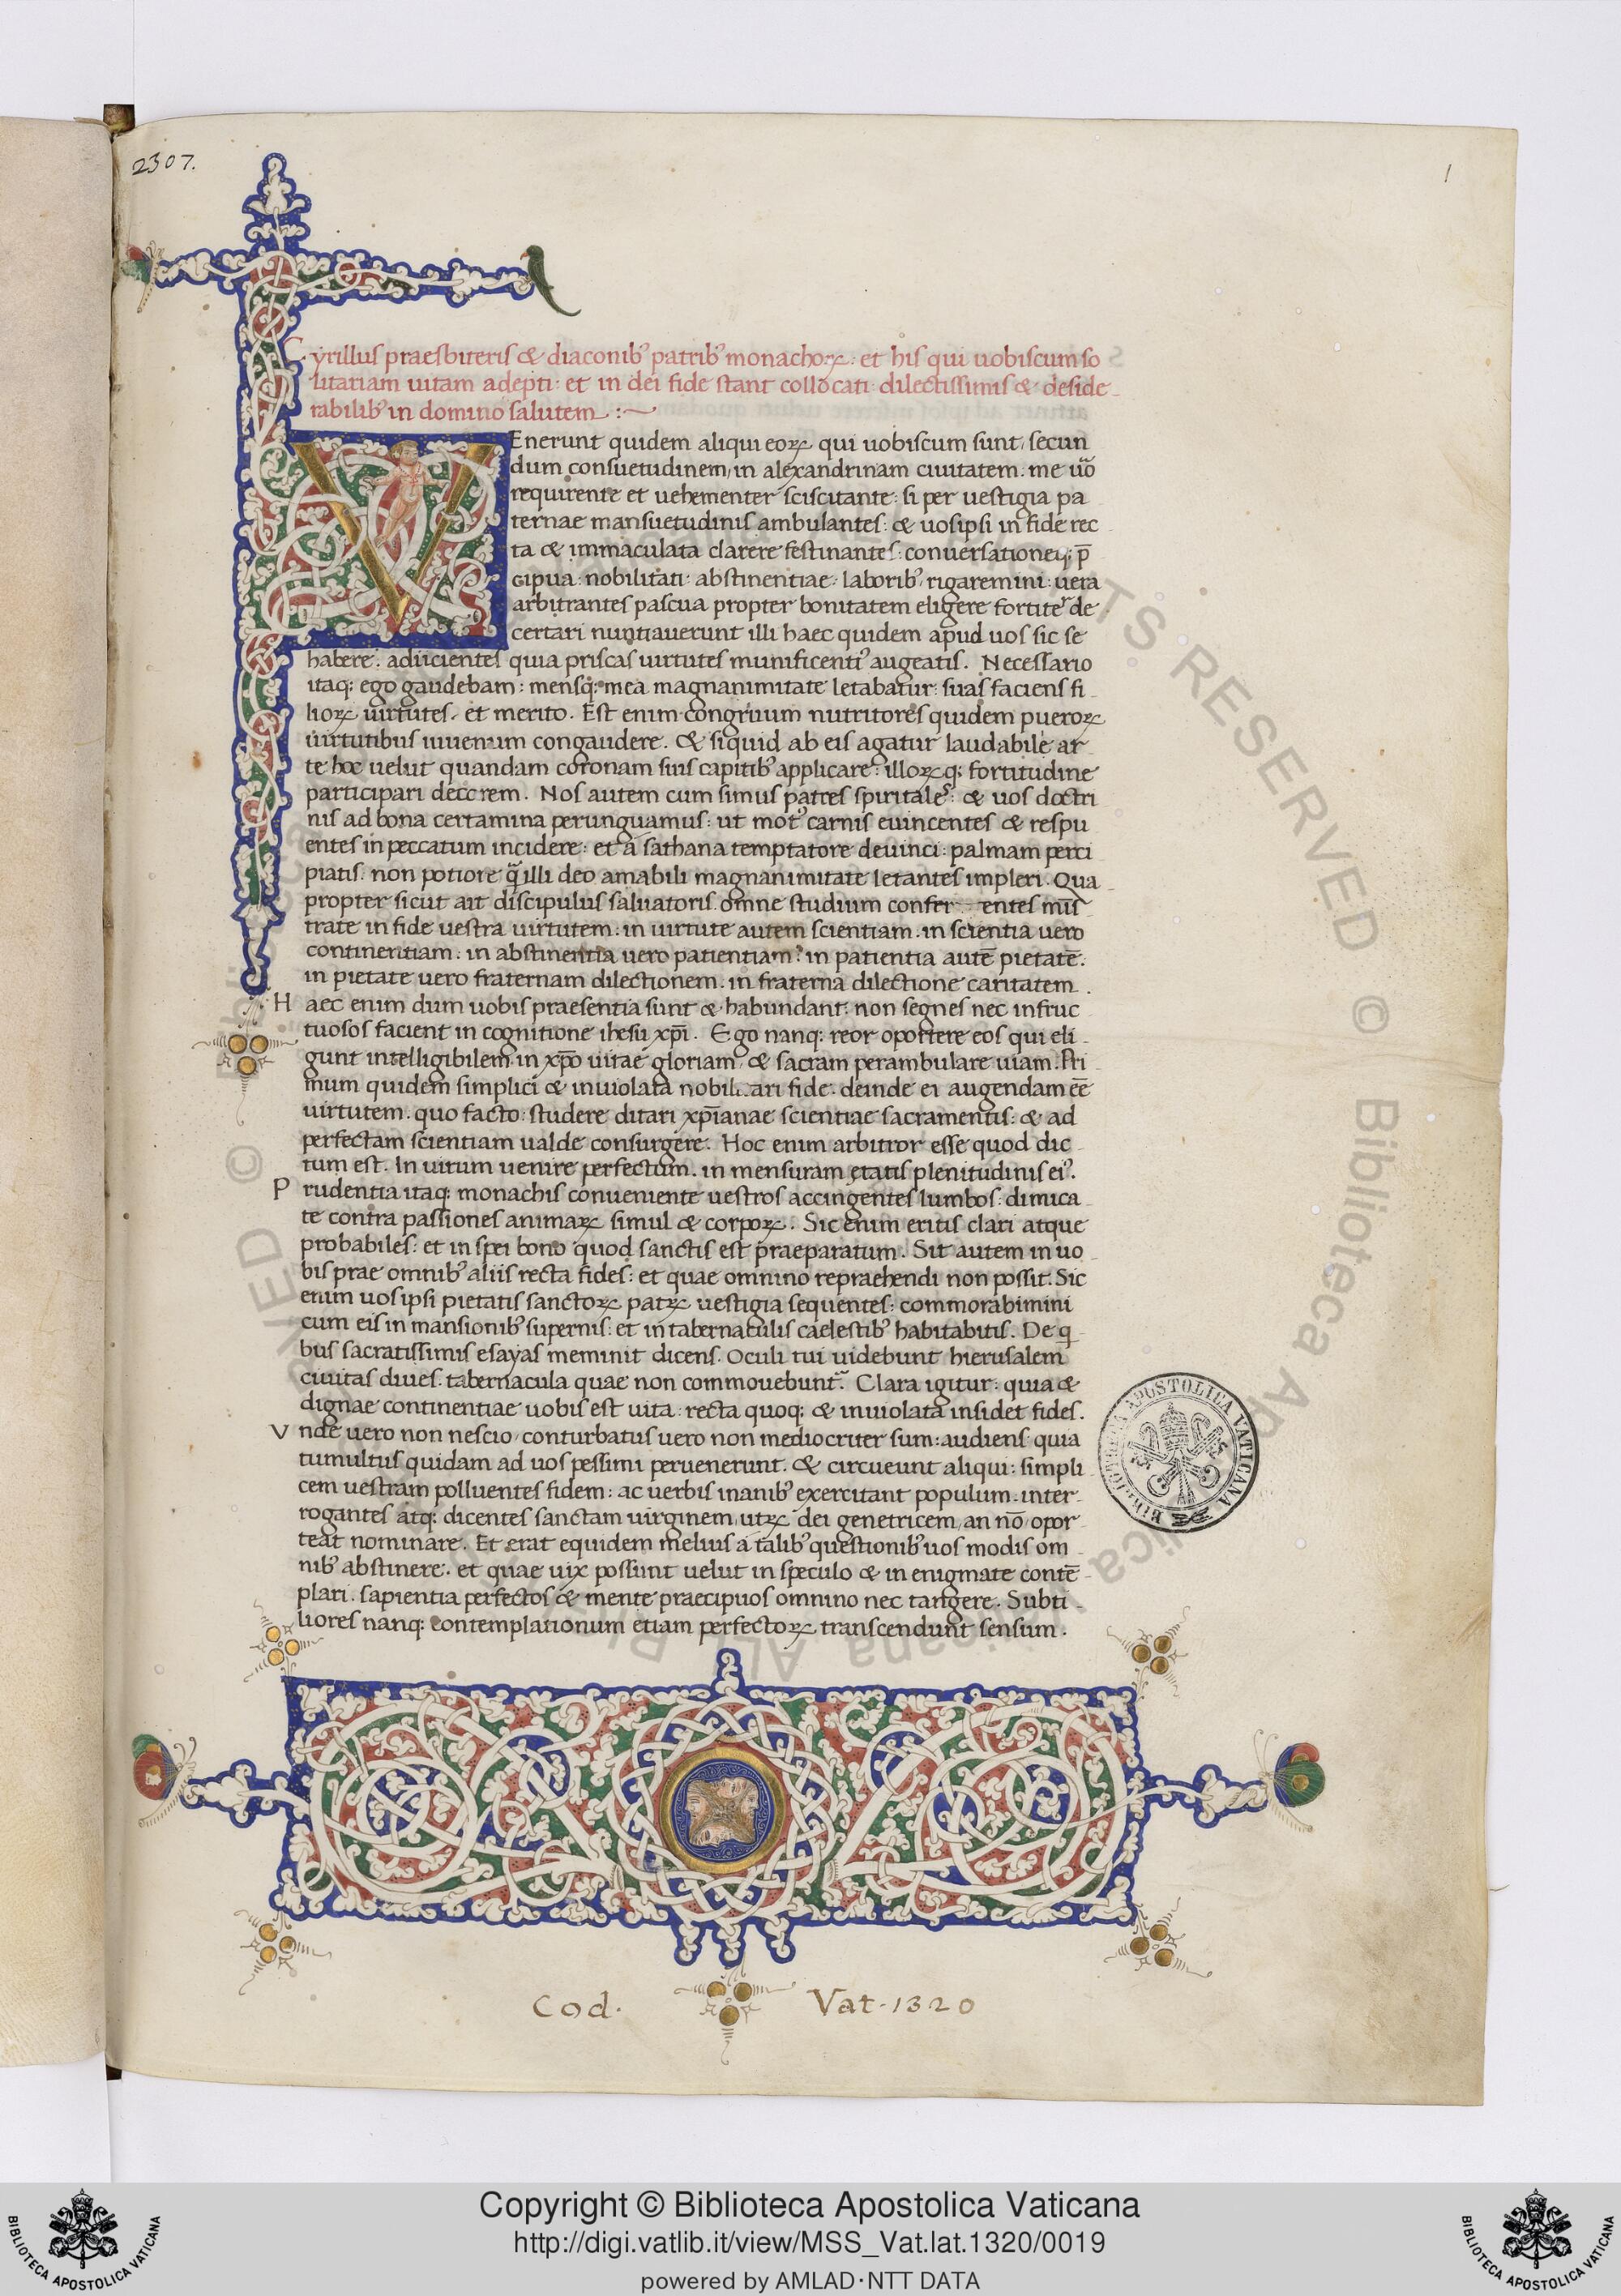 2307.
1
Cyrillus praesbiteris & diaconib᾽ patrib᾽ monachoꝝ: et his qui uobiscum so
litariam uitam adepti: et in dei fide stant collocati dilectissimis & deside
rabilib᾽ in domino salutem :~
VEnerunt quidem aliqui eoꝝ qui uobiscum sunt, secun
dum consuetudinem, in alexandrinam ciuitatem. me uo
requirente et uehementer sciscitante: si per uestigia pa
ternae mansuetudinis ambulantes: & uos ipsi in fide rec
ta & immaculata clarere festinantes: conuersationeq; p̄
cipua: nobilitati abstinentiae laborib᾽ rigaremini: uera
arbitrantes pascua propter bonitatem eligere fortiter de
certari nuntiauerunt illi haec quidem apud uos sic se
habere. adiicientes quia priscas uirtutes munificenti᾽ augeatis. Necessario
itaq; ego gaudebam: mensq; mea magnanimitate letabatur: suas faciens fi
lioꝝ uirtutes. et merito. Est enim congruum nutritores quidem pueroꝝ
uirtutibus iuuenum congaudere. & siquid ab eis agatur laudabile ar
te hoc uelut quandam coronam suis capitib᾽ applicare: illoꝝq; fortitudine
participari decorem. Nos autem cum simus patres spiritales: & uos doctri
nis ad bona certamina perunguamus: ut mot᾽ carnis euincentes & respu
entes in peccatum incidere: et a sathana temptatore deuinci: palmam perci
piatis. non potiore q̄ illi deo amabili magnanimitate letantes impleri. Qua
propter sicut ait discipulus saluatoris omne studium confer entes mīs
trate in fide uestra uirtutem. in uirtute autem scientiam. in scientia uero
continentiam. in abstinentia uero patientiam. in patientia autē pietatē.
in pietate uero fraternam dilectionem. in fraterna dilectione caritatem.
Haec enim dum uobis praesentia sunt & habundant: non segnes nec infruc
tuosos facient in cognitione ihesu xp̄i. Ego nanq; reor oportere eos qui eli
gunt intelligibilem in xp̄o uitae gloriam & sacram perambulare uiam. Pri
mum quidem simplici & inuiolata nobili ari fide. deinde ei augendam ēē
uirtutem. quo facto: studere ditari xp̄ianae scientiae sacramentis: & ad
perfectam scientiam ualde consurgere. Hoc enim arbitror esse quod dic
tum est. In uirum uenire perfectum. in mensuram ętatis plenitudinis ei᾽.
Prudentia itaq; monachis conueniente uestros accingentes lumbos: dimica
te contra passiones animaꝝ simul & corpoꝝ. Sic enim eritis clari atque
probabiles: et in spei bono quod sanctis est praeparatum. Sit autem in uo
bis prae omnib᾽ aliis recta fides: et quae omnino repraehendi non possit. Sic
enim uos ipsi pietatis sanctoꝝ patꝝ uestigia sequentes: commorabimini
cum eis in mansionib᾽ supernis: et in tabernaculis caelestib᾽ habitabitis. De q
bus sacratissimis esayas meminit dicens. Oculi tui uidebunt hierusalem
ciuitas diues. tabernacula quae non commouebunt᾽. Clara igitur: quia &
dignae continentiae uobis est uita: recta quoq; & inuiolata insidet fides.
Vnde uero non nescio, conturbatus uero non mediocriter sum: audiens quia
tumultus quidam ad uos pessimi peruenerunt. & circueunt aliqui: simpli
cem uestram polluentes fidem: ac uerbis inanib᾽ exercitant populum. inter
rogantes atq; dicentes sanctam uirginem, utꝝ dei genetricem, an nō opor
teat nominare. Et erat equidem melius a talib᾽ questionib᾽ uos modis om
nib᾽ abstinere. et quae uix possunt uelut in speculo & in enigmate contē
plari. sapientia perfectos & mente praecipuos omnino nec tangere. Subti
liores nanq; contemplationum etiam perfectoꝝ transcendunt sensum.
BIBLIOTHECA APOSTOLICA VATICANA
Cod. Vat. 1320
Copyright © Biblioteca Apostolica Vaticana
http://digi.vatlib.it/view/MSS_Vat.lat.1320/0019
powered by AMLAD·NTT DATA
BIBLIOTECA APOSTOLICA VATICANA
BIBLIOTECA APOSTOLICA VATICANA